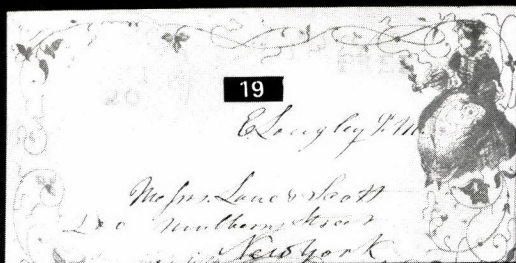 FREE
20
19
E Longley P.M.
Messrs. Lane & Scott
Mulberry Street
New York